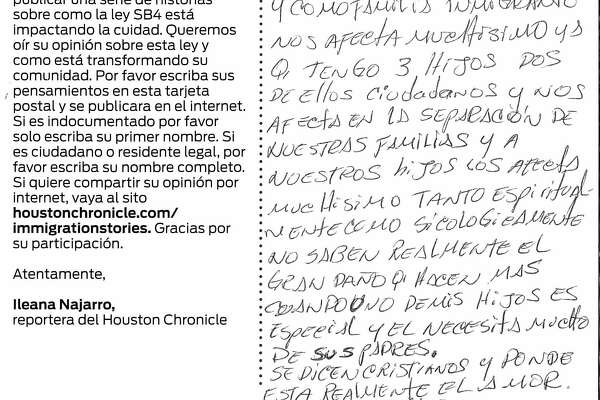 publicar una serie de historias
sobre como la ley SB4 está
impactando la cuidad. Queremos
oír su opinión sobre esta ley y
como está transformando su
comunidad. Por favor escriba sus
pensamientos en esta tarjeta
postal y se publicara en el internet.
Si es indocumentado por favor
solo escriba su primer nombre. Si
es ciudadano o residente legal, por
favor escriba su nombre completo.
Si quiere compartir su opinión por
internet, vaya al sito
houstonchronicle.com/
immigrationstories. Gracias por
su participación.
Atentamente,
Ileana Najarro,
reportera del Houston Chronicle
Y COMO FAMILIA INMIGRANTE
NOS AFECTA MUCHISIMO YA
Q' TENGO 3 HIJOS DOS
DE Ellos CIUDADANOS Y NOS
AFECTA EN LA SEPARACIÓN DE
NUESTRAS FAMILIAS Y A
NUESTROS HIJOS LOS AFECTA
MUCHISIMO TANTO ESPIRITUAL
MENTE COMO SICOLOGICAMENTE
NO SABEN REALMENTE EL
GRAN DAÑO Q' HACEN MAS
CUANDO UNO DE MIS HIJOS ES
ESPECIAL Y EL NECESITA MUCHO
DE SUS PADRES.
SE DICEN CRISTIANOS Y DONDE
ESTA REALMENTE EL AMOR.